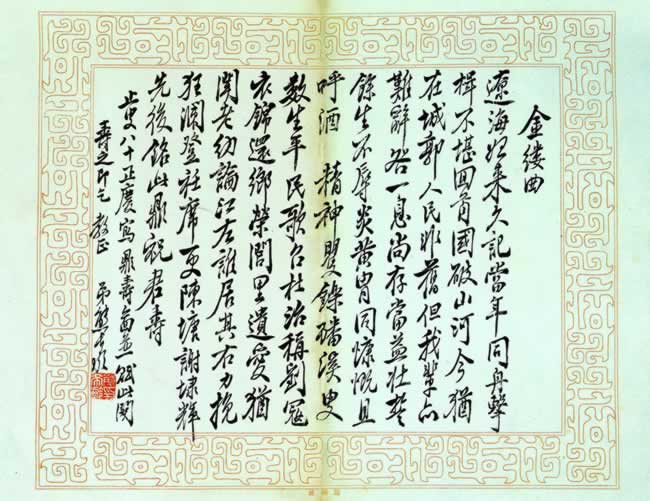 金縷曲
遼海歸來久記當年同舟擊
楫不堪回首國破山河今猶
在城郭人民非舊但我輩
難辭咎一息尚存當益壯誓
餘生不辱炎黃胄同慷慨且
呼酒 精神矍鑠磻溪叟
數生平民歌召杜治稱劉寇
衣錦還鄉榮閭里遺愛猶
聞老幼論江左誰居其右力挽
狂瀾登衽席更陳塘謝埭輝
先後銘此鼎祝君壽
止叟八十正慶寫鼎壽圖並賦此闋
壽之即乞 教正 弟熊